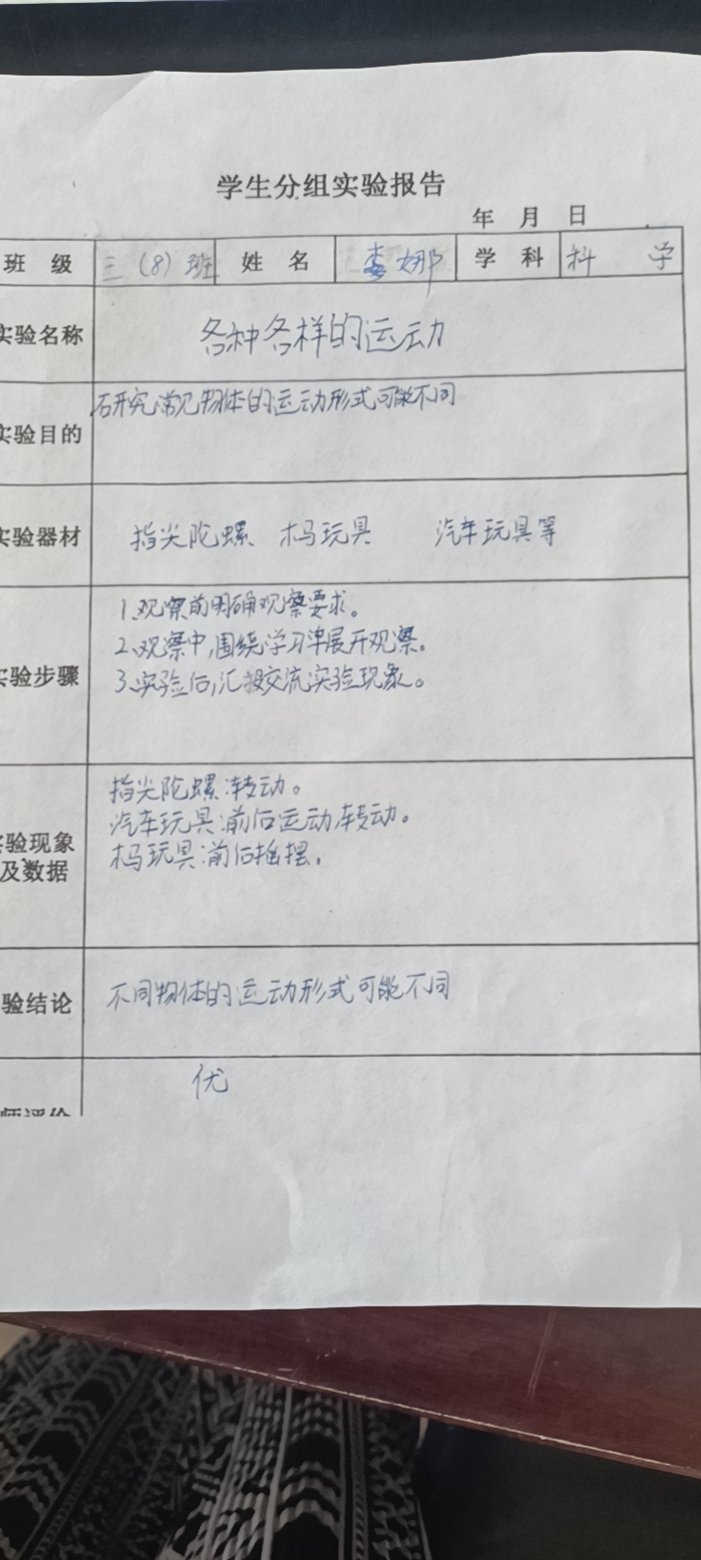 学生分组实验报告
年 月 日
班 级 三（8）班 姓 名 李娜 学 科 科 学
实验名称 各种各样的运动
实验目的 研究常见物体的运动形式可能不同
实验器材 指尖陀螺 木马玩具 汽车玩具等
实验步骤 1.观察前明确观察要求。
2.观察中,围绕学习单展开观察。
3.实验后,汇报交流实验现象。
实验现象
及数据
指尖陀螺:转动。
汽车玩具:前后运动,转动。
木马玩具:前后摇摆。
验结论 不同物体的运动形式可能不同
师评价 优